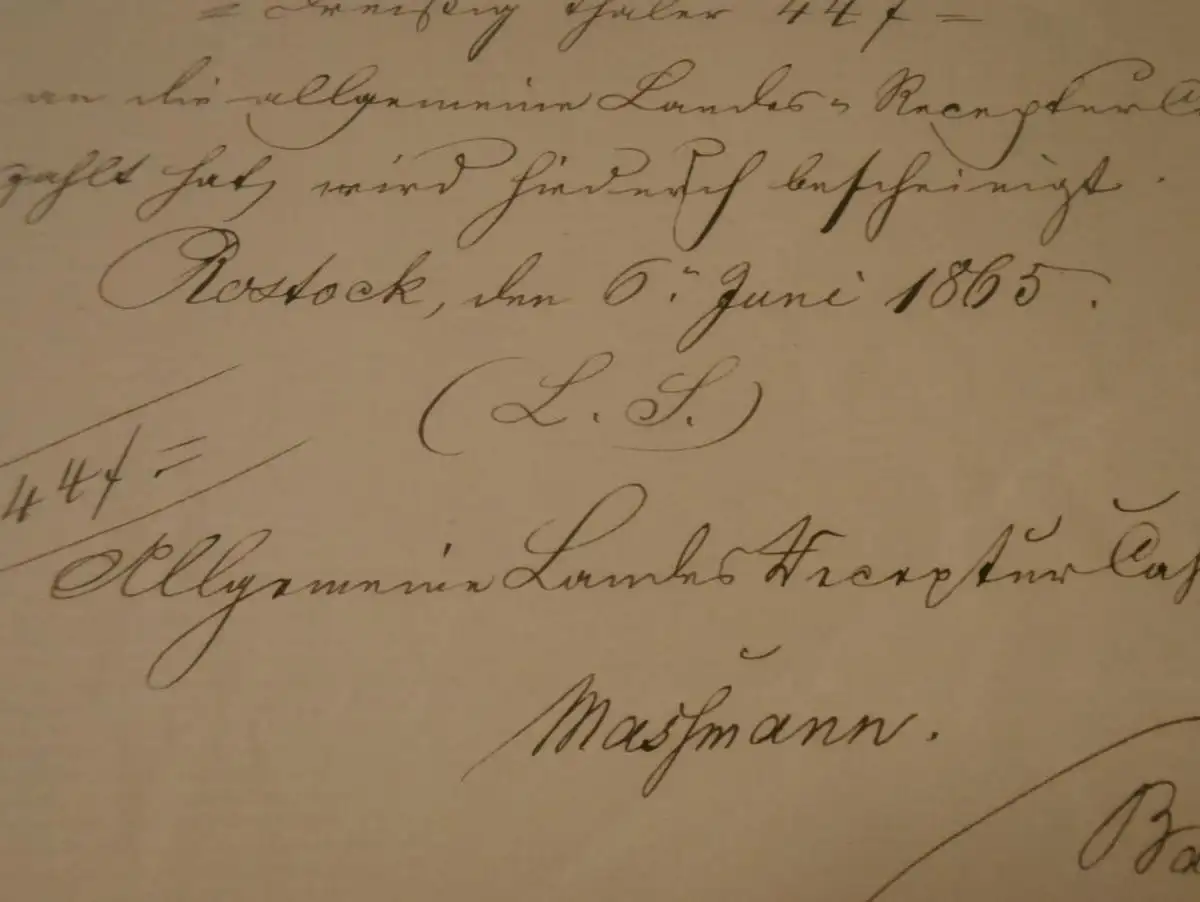 = Dreißig Thaler 44 f =
an die allgemeine Landes=Receptur Ca
zahlt hat, wird hiedurch bescheinigt.
Rostock, den 6. Juni 1865.
(L. S.)
44 f =
Allgemeine Landes Receptur Cas
Massmann.
Ba